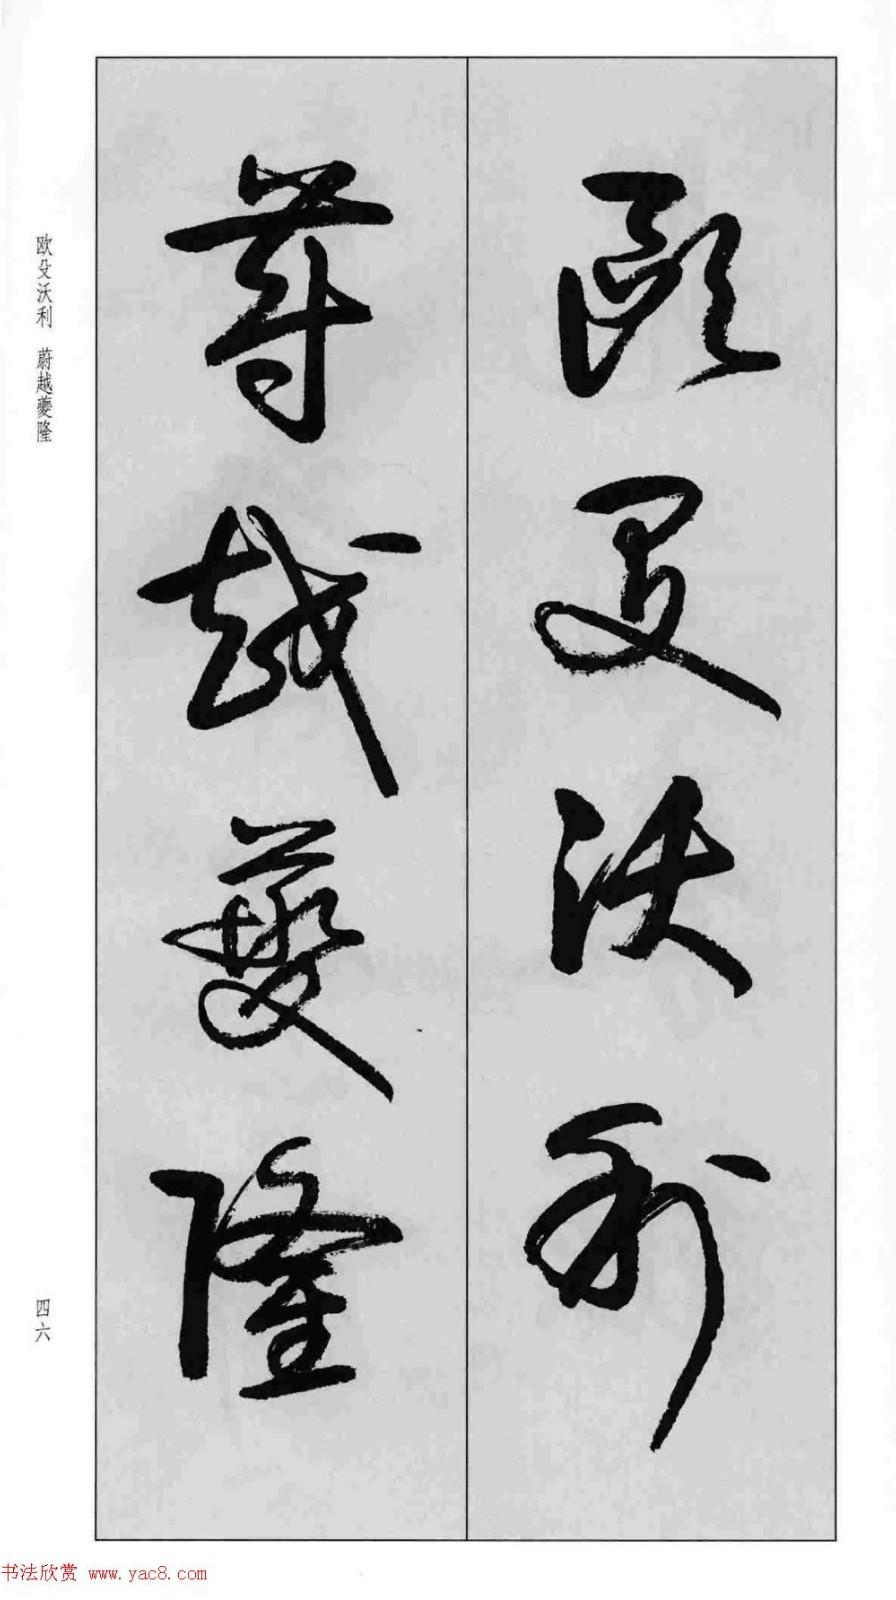 欧殳沃利
蔚越蘷隆
欧殳沃利 蔚越蘷隆
四六
书法欣赏 www.yac8.com